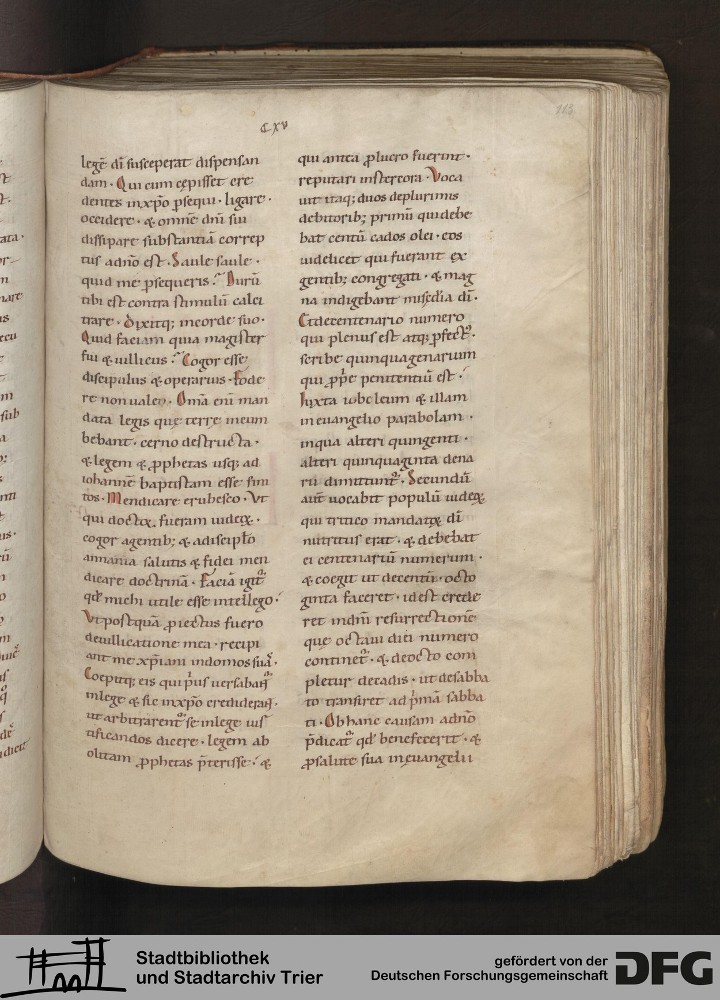 cxv
113
legē di susceperat dispensan
dam. Qui cum cepisset cre
dentes inxp̄o p̱sequi. ligare.
occidere. & omnē dnī sui
dissipare substantiā correp
tus adnō est. Saule saule.
quid me p̱sequeris? Durū
tibi est contra stimulū calci
trare. Dixitq; incorde suo.
Quid faciam quia magister
fui & uillicus? Cogor esse
discipulus & operarius. Fode
re non ualeo. Oma eni man
data legis que terre incum
bebant. cerno destructa.
& legem & p̱phetas usq; ad
iohannē baptistam esse fini
tos. Mendicare erubesco. Vt
qui doctoꝝ fueram iudeoꝝ.
cogor agentib; & adiscipło
annania salutis & fidei men
dicare doctrinā. Faciā igit᷑
qd̄ michi utile esse intellego.
Vt postquā p̱iectus fuero
deuillicatione mea. recipi
ant me xp̄iani indomos suā.
Coepitq; eis qui p̓us uersabant᷑
inlege & sic inxp̄o crediderant.
ut arbitrarent᷑ se inlege ius
tificandos dicere. legem ab
olitam p̱phetas p̄terisse. &
qui antea p̱lucro fuerint.
reputari instercora. Voca
uit itaq; duos deplurimis
debitorib; primū qui debe
bat centū cados olei. eos
uidelicet qui fuerant ex
gentib; congregati. & mag
na indigebant miscdia di.
Et decentenario numero
qui plenus est atq; p̱fect᷒.
scribe quinquagenarium
qui p̱pe penitentiū est.
Iuxta iubeleum & illam
in euangelio parabolam.
inqua alteri quingenti.
alteri quinquaginta dena
rii dimittunt᷑. Secundū
aut̄ uocabit populū iudeoꝝ
qui tritico mandatoꝝ di
nutritus erat. & debebat
ei centenariū numerum.
& coegit ut decentū. octo
ginta faceret. id est crede
ret indnī resurrectionē
que octaui diei numero
continet᷑. & deocto com
pletur decadis. ut desabba
to transiret ad p̓mā sabba
ti. Ob hanc causam adnō
p̄dicat᷑ qd̄ benefecerit. &
p̱salute sua in euangelii
Stadtbibliothek
und Stadtarchiv Trier
gefördert von der
Deutschen Forschungsgemeinschaft
DFG